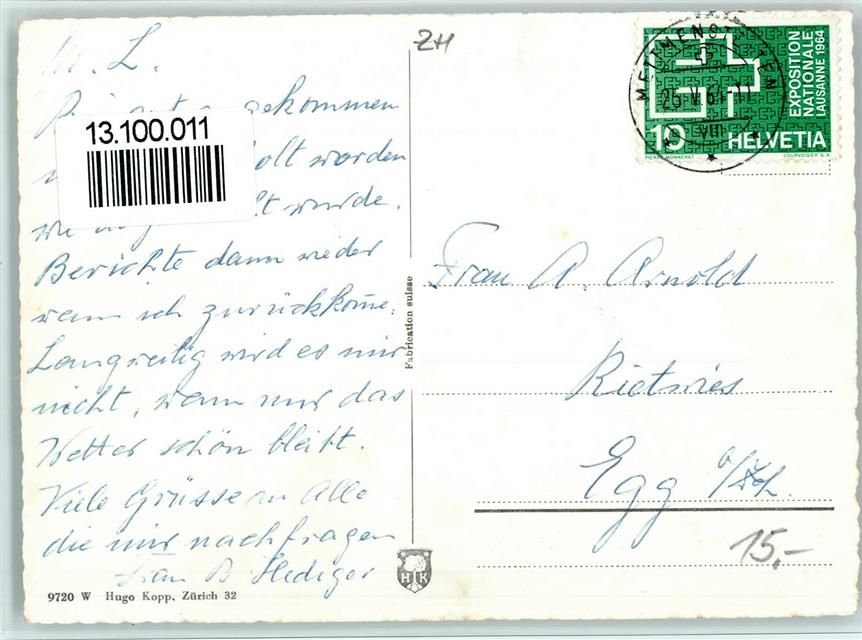 M. L.
gekommen
13.100.011
holt worden
wie wurde.
Berichte dann wieder
wenn ich zurückkome.
Langweilig wird es mir
nicht, wenn nur das
Wetter schön bleibt.
Viele Grüsse an Alle
die mir nachfragen
Frau B. Hediger
9720 W Hugo Kopp, Zürich 32
Fabrication suisse
HK
ZH
METTMENST TEN
25.V.64-11
VIII
EXPOSITION
NATIONALE
LAUSANNE 1964
10 HELVETIA
PIERRE MONNERAT COURVOISIER S.A.
Frau A. Arnold
Rietwies
Egg
15.-